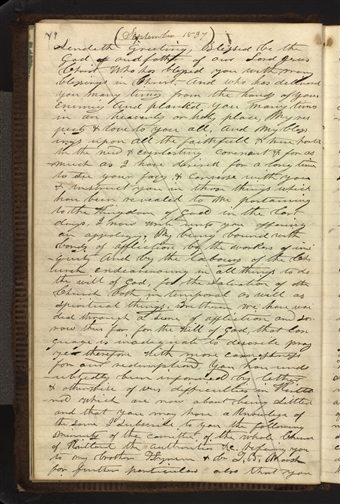 (September 1837)
Sendeth Greeting, Blessed be the
God and father of our Lord Jesus
Christ Who has blessed you with many
blessings in Christ And who has delivered
you many times from the hands of your
Enemies And planted you many times
in an heavenly or holy place, My res
pects & love to you all, and My bless
ings upon all the faithfull & true harted
in the new & everlasting Covenant & for as
much as I have desired for a long time
to see your faces & converse with you
& instruct you in those things which
have been revealed to me pertaining
to the Kingdom of God in the last
days, I now write unto you offering
an apology, My being bound with
bonds of affliction by the workers of ini
quity And by the labours of the Ch
urch endeavouring in all things to do
the will of God, for the salvation of the
Church both in temporal as well as
spiritual things. Brethren we have wa
ded through a scene of affliction and sor
row thus far for the will of God, that lan
guage is inadequate to describe pray
ye therefore with more earnestness
for our redemption, You have und
oubtedly been informed by letter
& otherwise of our difficulties in Kirtla
nd which are now about being settled
and that you may have a knowledge of
the same I subscribe to you the following
minutes of the committee, of the whole Church
of Kirtland the authorities &c. refering you
to my brother Hyrum & Br T. B. Marsh
for further particulars also that you